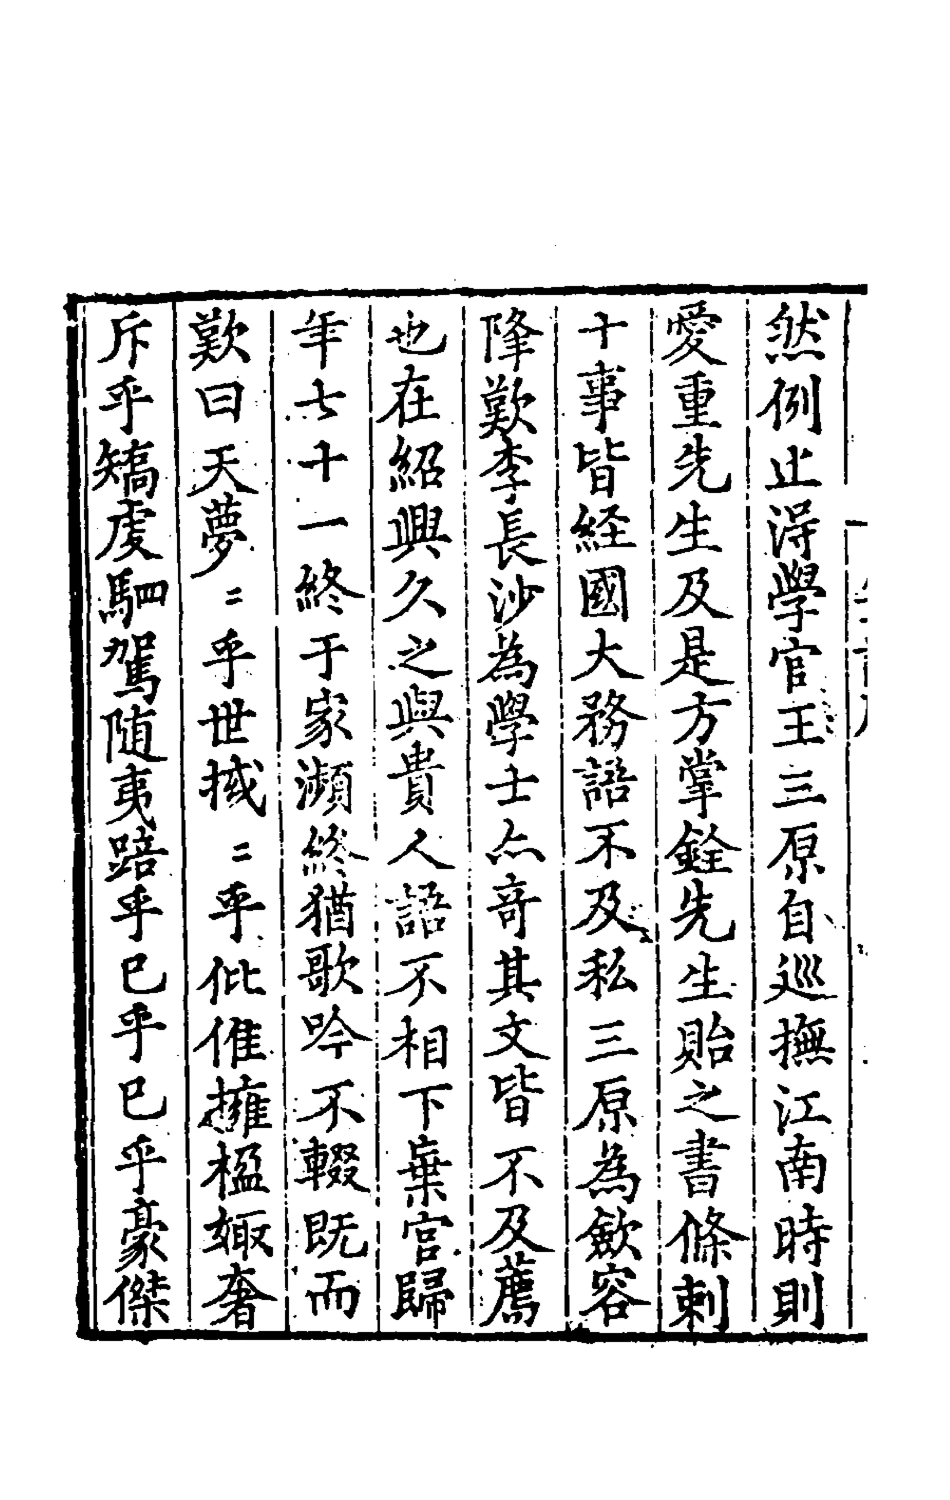 然例止得學官王三原自巡撫江南時則
愛重先生及是方掌銓先生貽之書條刺
十事皆経國大務語不及私三原為歛容
隆歎李長沙為學士亦竒其文皆不及薦
也在紹興久之與貴人語不相下棄官歸
年七十一終于家瀕終猶歌吟不輟既而
歎曰天夢〻乎世㦯〻乎仳倠擁楹娵奢
斥乎矯虔駟駕随夷踣乎已乎已乎豪傑